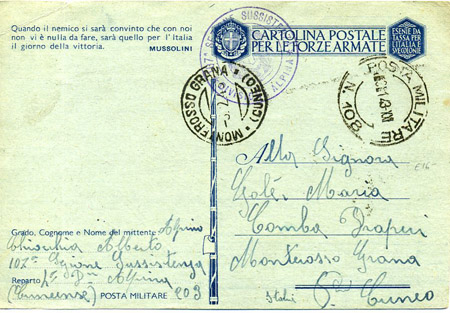 Quando il nemico si sarà convinto che con noi
non vi è nulla da fare, sarà quello per l'Italia
il giorno della vittoria.
MUSSOLINI
CARTOLINA POSTALE
PER LE FORZE ARMATE
ESENTE DA
TASSA PER
L'ITALIA E
SUE COLONIE
SUSSISTENZA
ALPINA
MONTEROSSO GRANA (CUNEO)
POSTA MILITARE
N. 108
Alla Signora
Golé Maria
Comba
Monterosso Grana
Cuneo
Italia
Grado, Cognome e Nome del mittente Alpino
Alberto
102ª Sezione Sussistenza
Reparto 4ª Alpina
(Cuneense) POSTA MILITARE 203